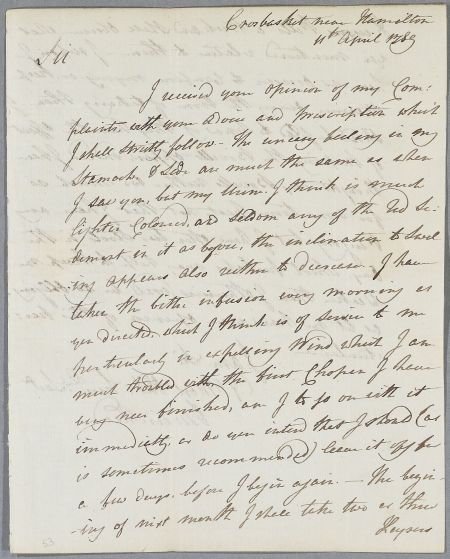 Crosbasket near Hamilton
11th April 1789
Sir
I received your opinion of my Com-
plaints, with your advice and prescription which
I shall strictly follow - The uneasy feeling in my
Stomach & Side are much the same as when
I saw you, but my Urine I think is much
lighter Colored, and seldom any of the red Se-
dement in it as before, the inclination to Swel
ing appears also rather to decrease. I have
taken the bitter infusion every morning as
you directed, which I think is of service to me
particularly in expelling Wind which I am
much troubled with, the first Chopen I have
very near finished, am I to go on with it
immediatly, or do you intend that I should (as
is sometimes recommended) leave it off for
a few days, before I begin again. — The begin-
ing of next month I shall take two or three
Heysers
53